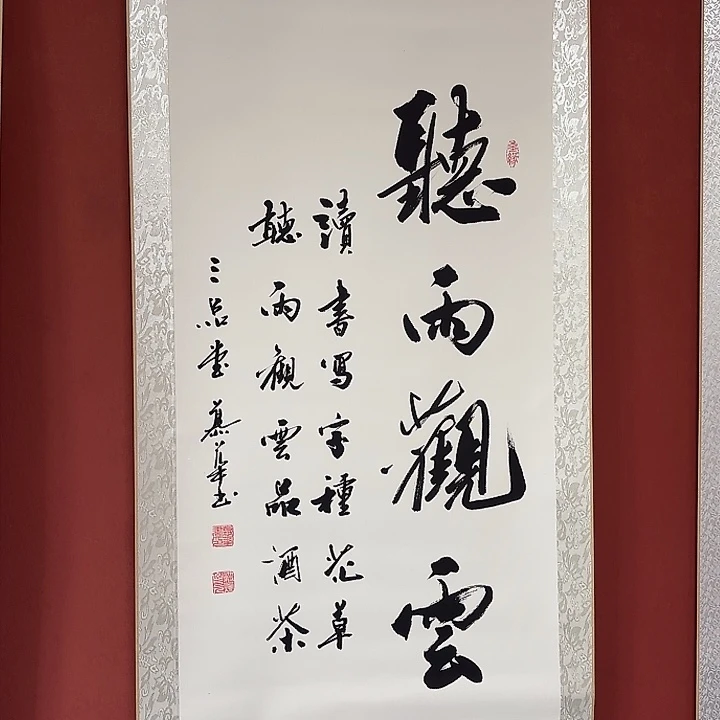 聽雨觀雲
讀書寫字種花草
聽雨觀雲品酒茶
三品堂慕華书